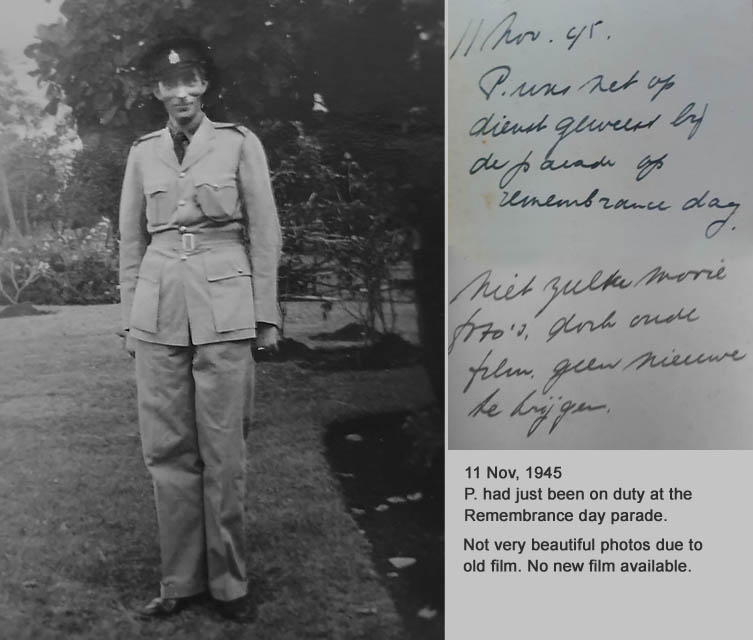 11 Nov. 45.
P. was net op
dienst geweest bij
de parade op
remembrance day.
Niet zulke mooie
foto's, doch oude
film. geen nieuwe
te krijgen.
11 Nov, 1945
P. had just been on duty at the
Remembrance day parade.
Not very beautiful photos due to
old film. No new film available.